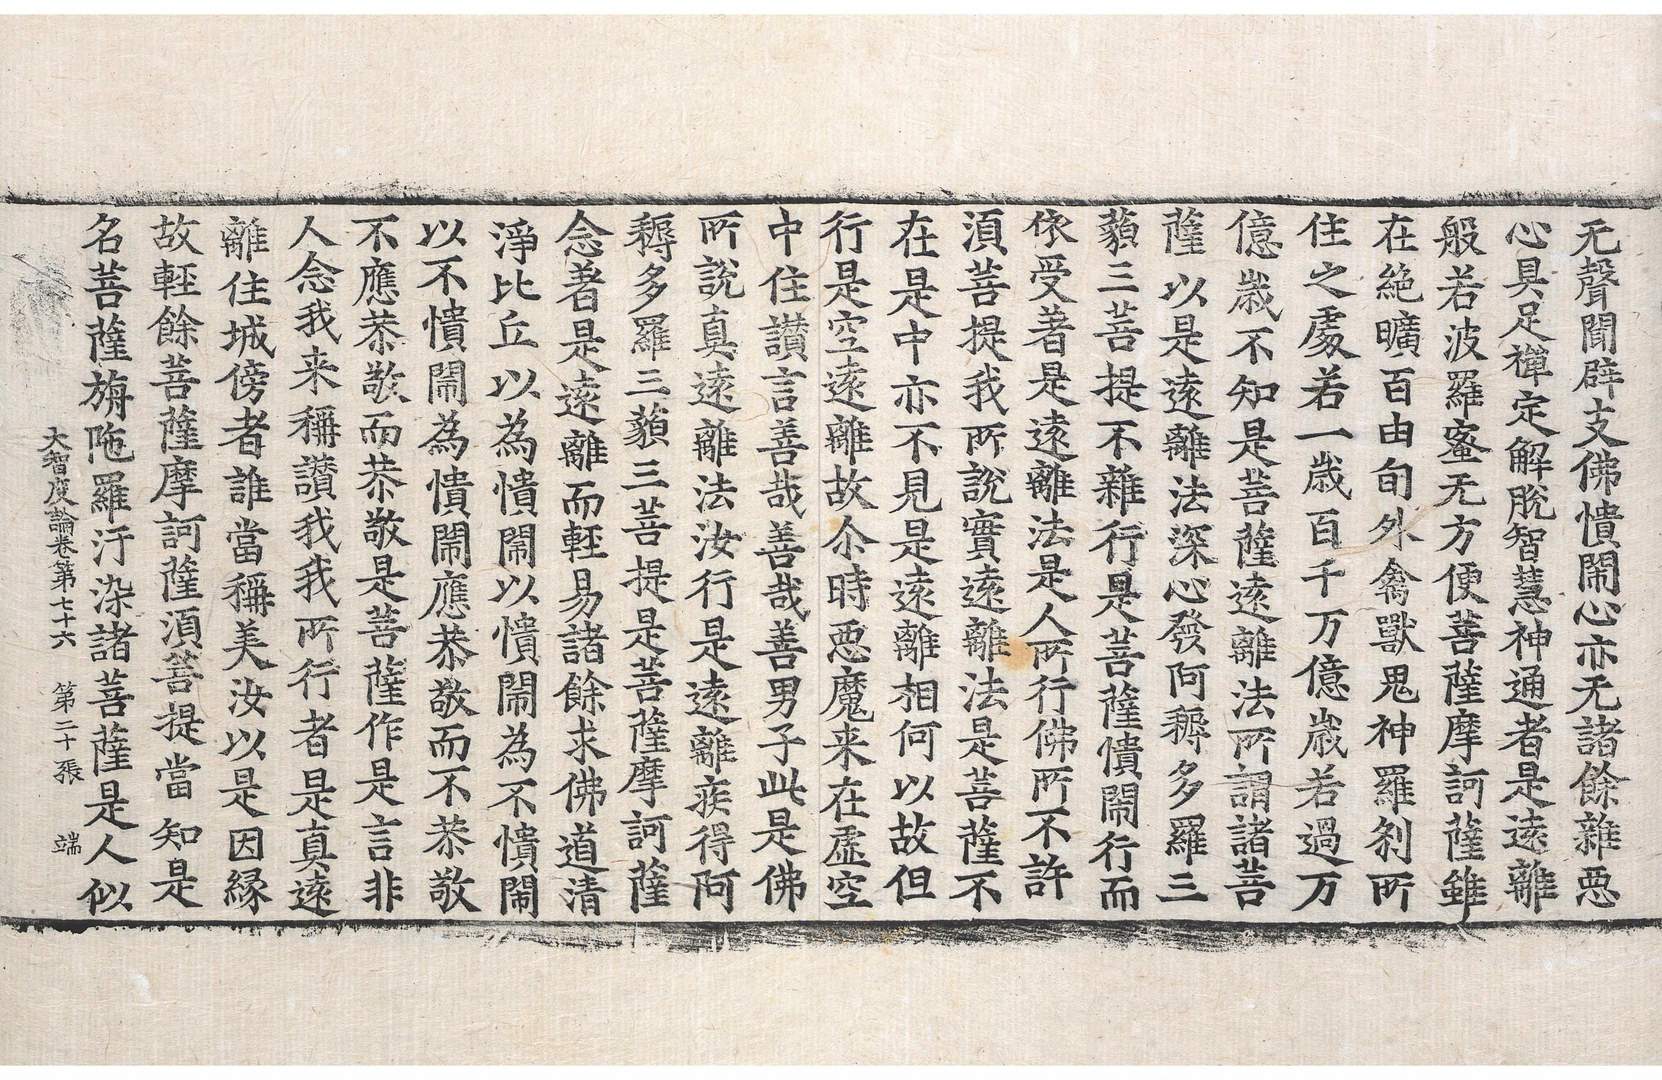 无聲聞辟支佛憒鬧心亦无諸餘雜惡
心具足禪定解脫智慧神通者是遠離
般若波羅蜜无方便菩薩摩訶薩雖
在絶曠百由旬外禽獸鬼神羅刹所
住之處若一歲百千万億歲若過万
億歲不知是菩薩遠離法所謂諸菩
薩以是遠離法深心發阿耨多羅三
藐三菩提不雜行是菩薩憒鬧行而
依受著是遠離法是人所行佛所不許
湏菩提我所說實遠離法是菩薩不
在是中亦不見是遠離相何以故但
行是空遠離故尒時惡魔来在虛空
中住讃言善哉善哉善男子此是佛
所說真遠離法汝行是遠離疾得阿
耨多羅三藐三菩提是菩薩摩訶薩
念著是遠離而輕易諸餘求佛道清
淨比丘以為憒鬧以憒鬧為不憒鬧
以不憒鬧為憒鬧應恭敬而不恭敬
不應恭敬而恭敬是菩薩作是言非
人念我来稱讃我我所行者是真遠
離住城傍者誰當稱美汝以是因緣
故輕餘菩薩摩訶薩湏菩提當知是
名菩薩旃陁羅汙染諸菩薩是人似
大智度論卷第七十六 第二十張 端